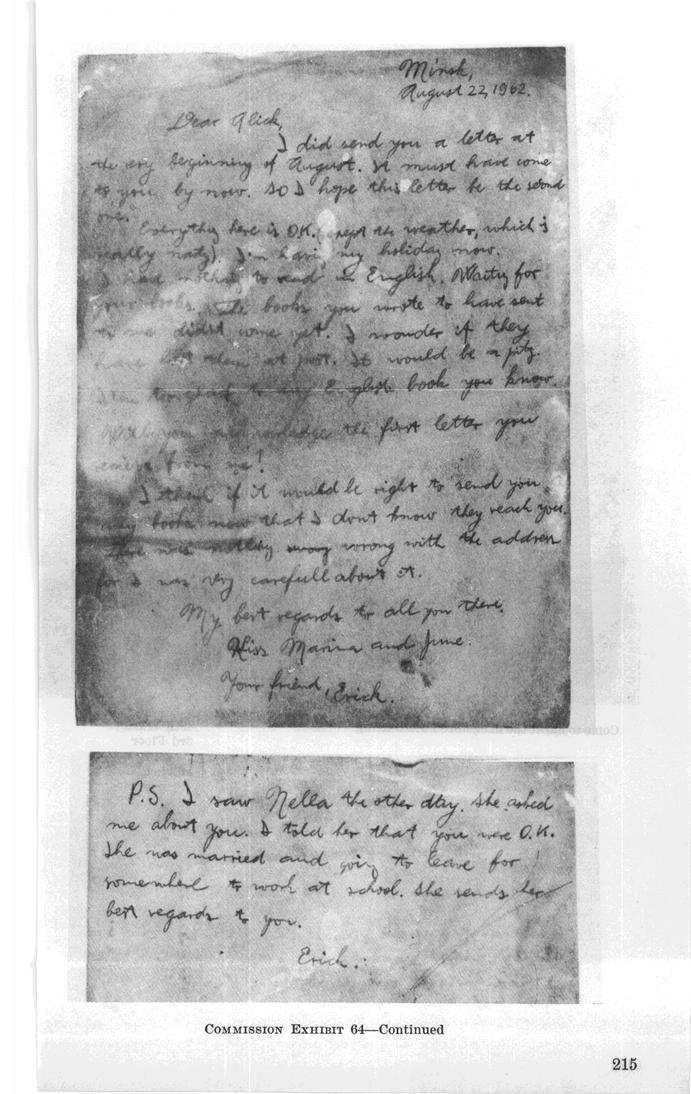 Minsk,
August 22, 1962.
Dear Alick,
I did send you a letter at
the very beginning of August. It must have come
to you by now. So I hope this letter be the second
one.
Everything here is O.K. (exept the weather, which is
nasty). I'm having my holiday now.
I had nothing to read in English. Waiting for
your books. The books you wrote to have sent
to me didn't come yet. I wonder if they
have lost them at post. It would be a pity.
to any English book you know.
you acknowledge the first letter you
from me!
I think if it would be right to send you
any books now that I don't know they reach you.
There was nothing wrong with the address
for I was very carefull about it.
My best regards to all you there.
Kiss Marina and June.
Your friend, Erick.
P.S. I saw Nella the other day. She asked
me about you. I told her that you were O.K.
She was married and going to leave for
somewhere to work at school. She sends her
best regards to you.
Erick.
COMMISSION EXHIBIT 64—Continued
215